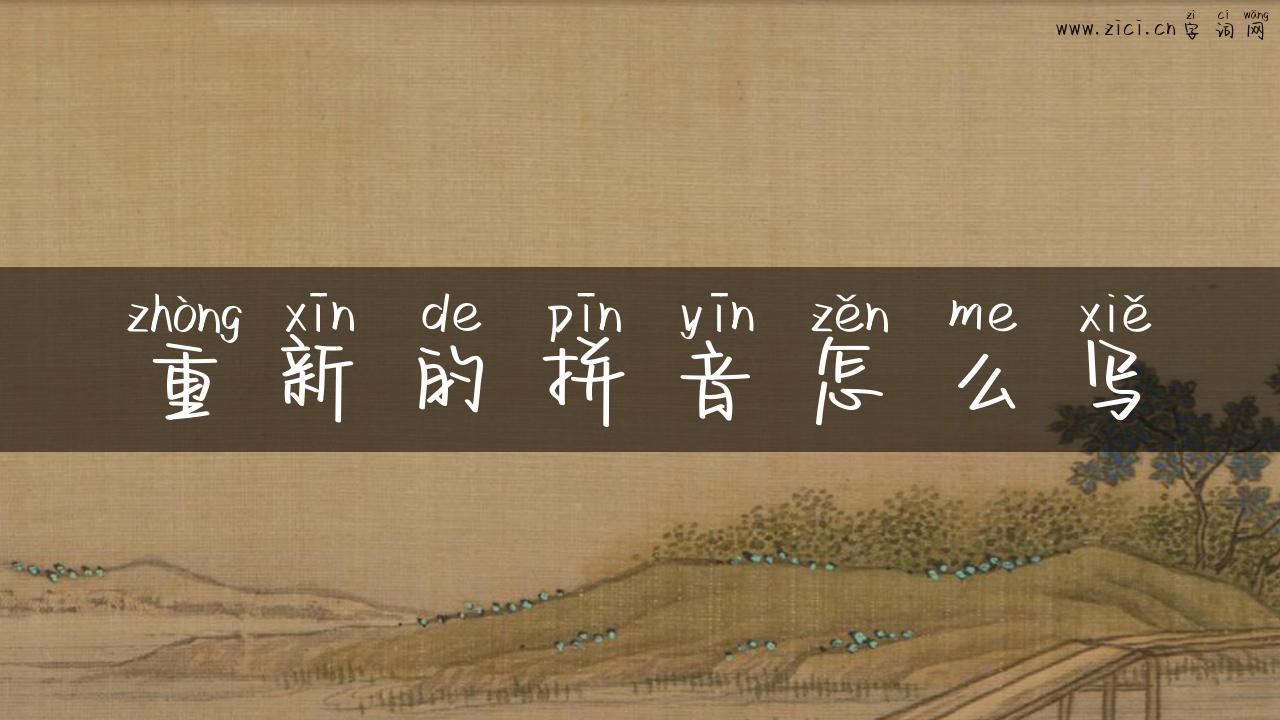 zì cí wǎng
www.zici.cn字词网
zhòng xīn de pīn yīn zěn me xiě
重新的拼音怎么写